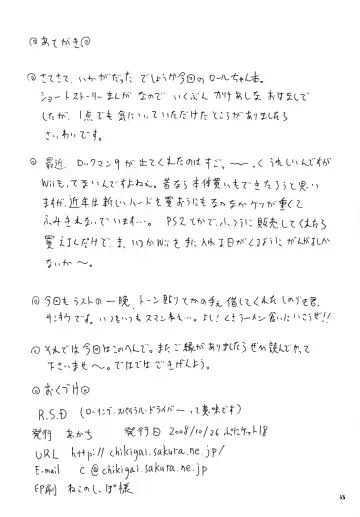 ◎あとがき◎
◎さてさて、いかがだった でしょうか今回の ロールちゃん本。
ショートストーリーまんが なので いくぶん かけあしな おはなしで
したが、1点でも気にいっていただけた ところが ありましたら
さいわいです。
◎最近、ロックマン9 が出てくれたのは すご、〜〜.く うれしいんですが
Wiiもってないんですよねん。昔なら本体買いもできたろうと思い
ますが、近年は新しいハードを買おうにも なかなか ケツが重くて
ふみきえないでいます…。 PS2とかで、ふつうに販売してくれたら
買えるんだけど、ま、いつかWiiを手に入れる日がくるように がんばるしか
ないか〜。
◎今回もラストの一晩、トーン貼りとかの手を借してくれた しのづき君、
サンキウです。いつもいつもスマン本も…。よし!くさラーメン食いにいこうぜ!!
◎それでは今回はこのへんで。またご縁がありましたらぜひ読んでやって
下さいませ〜。ではでは ごきげんよう。
◎おくづけ◎
R.S.D (ローリング・スパイラル・ドライバーって意味です)
発行 あかち 発行日 2008/10/26 ぷにケット18
URL http://chikigai.sakura.ne.jp/
E-mail c@chikigai.sakura.ne.jp
印刷 ねこのしっぽ様